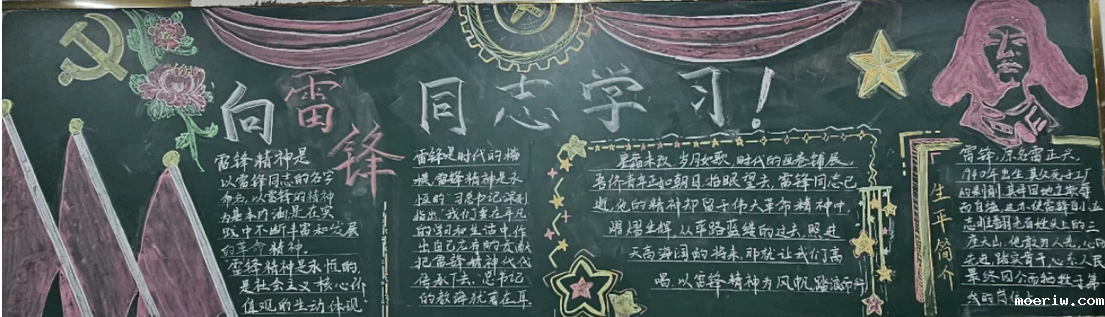 向雷锋同志学习!
雷锋精神是
以雷锋同志的名字
命名,以雷锋的精神
为基本内涵,是在实
践中不断丰富和发展
的革命精神。
雷锋精神是永恒的,
是社会主义核心价
值观的生动体现
雷锋是时代的楷
模,雷锋精神是永
恒的。习总书记深刻
指出"我们要在平凡
的学习和生活中,作
出自己应有的贡献
把雷锋精神代代
传承下去。总书记
的教诲犹言在耳
星霜未改,岁月如歌,时代的画卷铺展。
吾侪青年正如朝日,抬眼望去,雷锋同志已
逝,他的精神却留于伟大革命精神中,
熠熠生辉,从筚路蓝缕的过去,照进
天高海阔的将来,那就让我们高
喝,以雷锋精神为风帆,踏浪而行!
生平简介
雷锋,原名雷正兴,
1940年出生,其父死于工厂
的剥削,其母因地主欺辱
而自缢
最终因公而牺牲
线的岗位上
moeriw.com